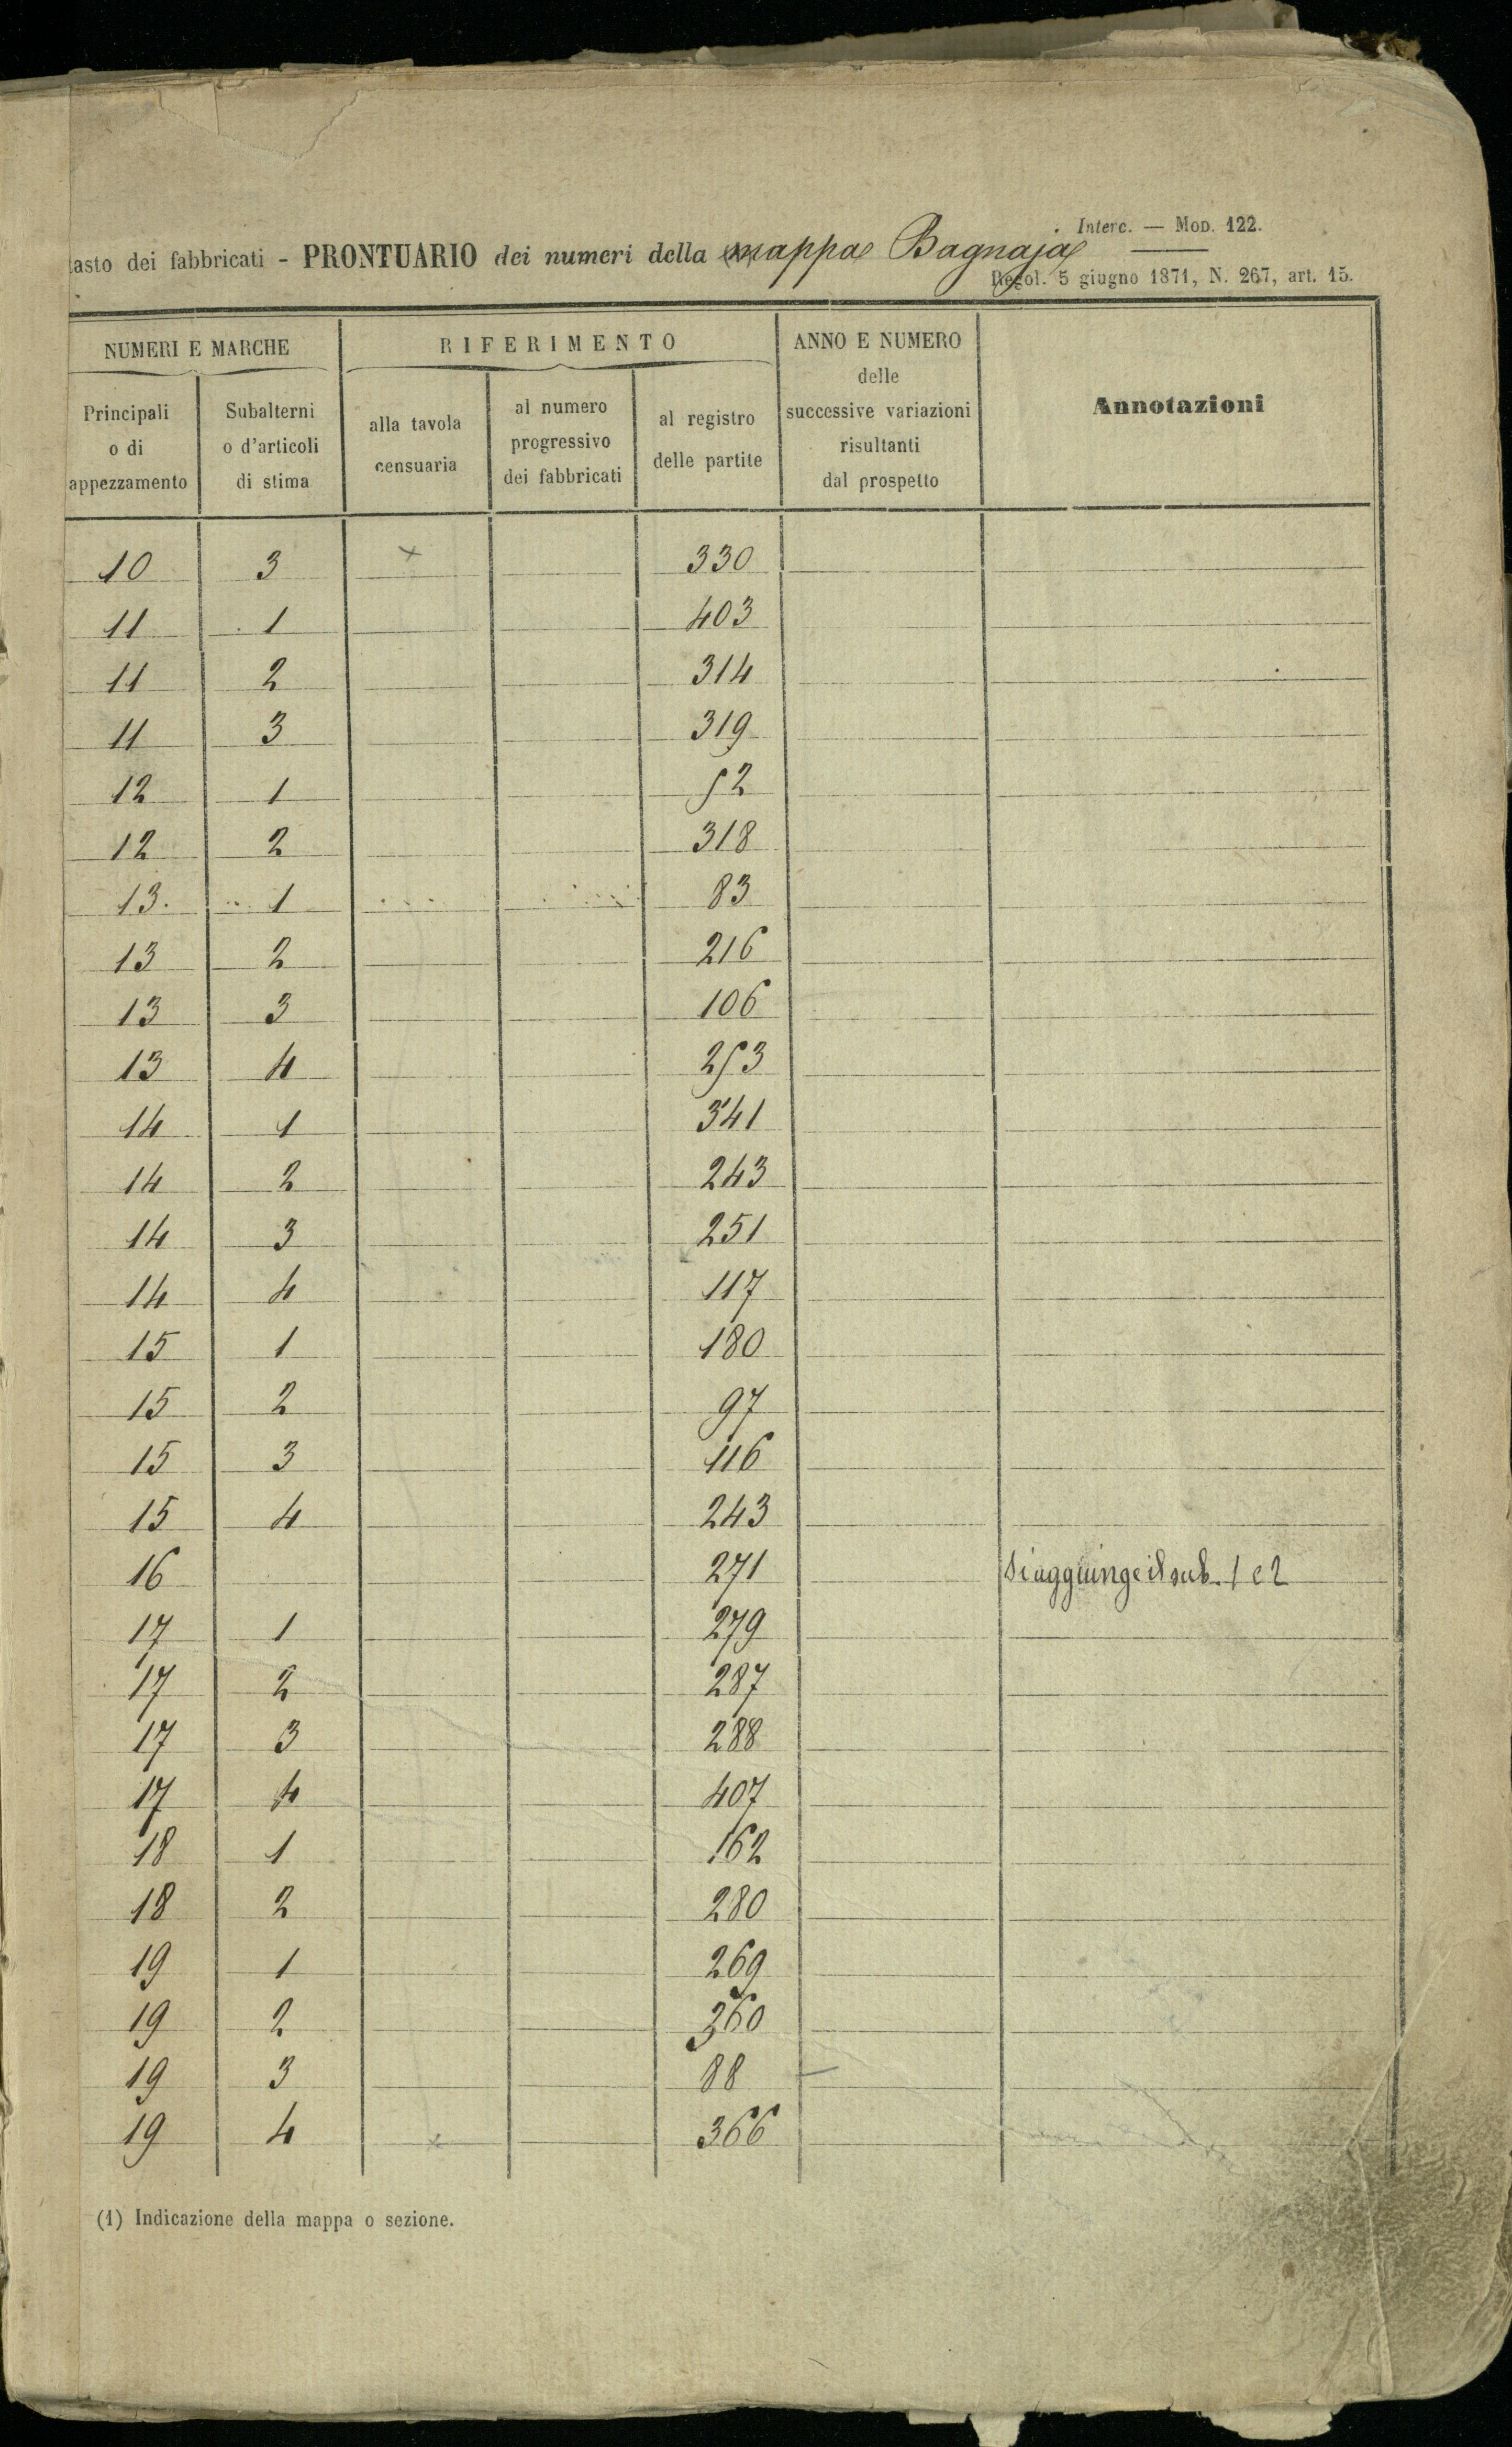 Interc. — Mod. 122.
tasto dei fabbricati - PRONTUARIO dei numeri della mappa Bagnaja
Regol. 5 giugno 1871, N. 267, art. 15.
NUMERI E MARCHE
RIFERIMENTO
ANNO E NUMERO
delle
successive variazioni
risultanti
dal prospetto
Annotazioni
Principali
o di
appezzamento
Subalterni
o d'articoli
di stima
alla tavola
censuaria
al numero
progressivo
dei fabbricati
al registro
delle partite
10 3 x 330
11 1 403
11 2 314
11 3 319
12 1 52
12 2 318
13. 1 83
13 2 216
13 3 106
13 4 253
14 1 341
14 2 243
14 3 251
14 4 117
15 1 180
15 2 97
15 3 116
15 4 243
16 271 si aggiunge il sub. 1 e 2
17 1 279
17 2 287
17 3 288
17 4 407
18 1 162
18 2 280
19 1 269
19 2 360
19 3 88 —
19 4 x 366
(1) Indicazione della mappa o sezione.